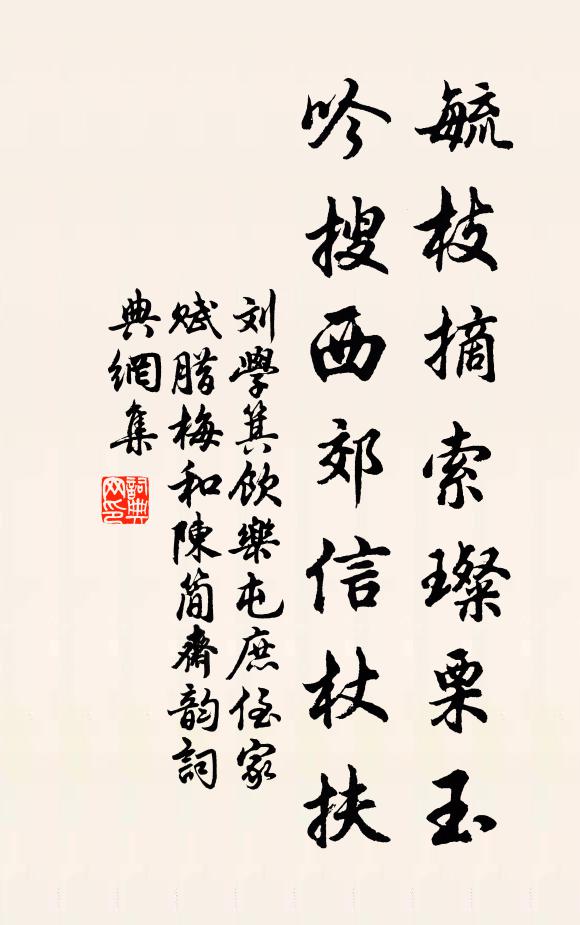 毓枝摘索璨栗玉
吟搜西郊信杖扶
刘學箕飲樂屯庶侄家
赋腊梅和陳簡齋韵詞
典網集
詞典网印